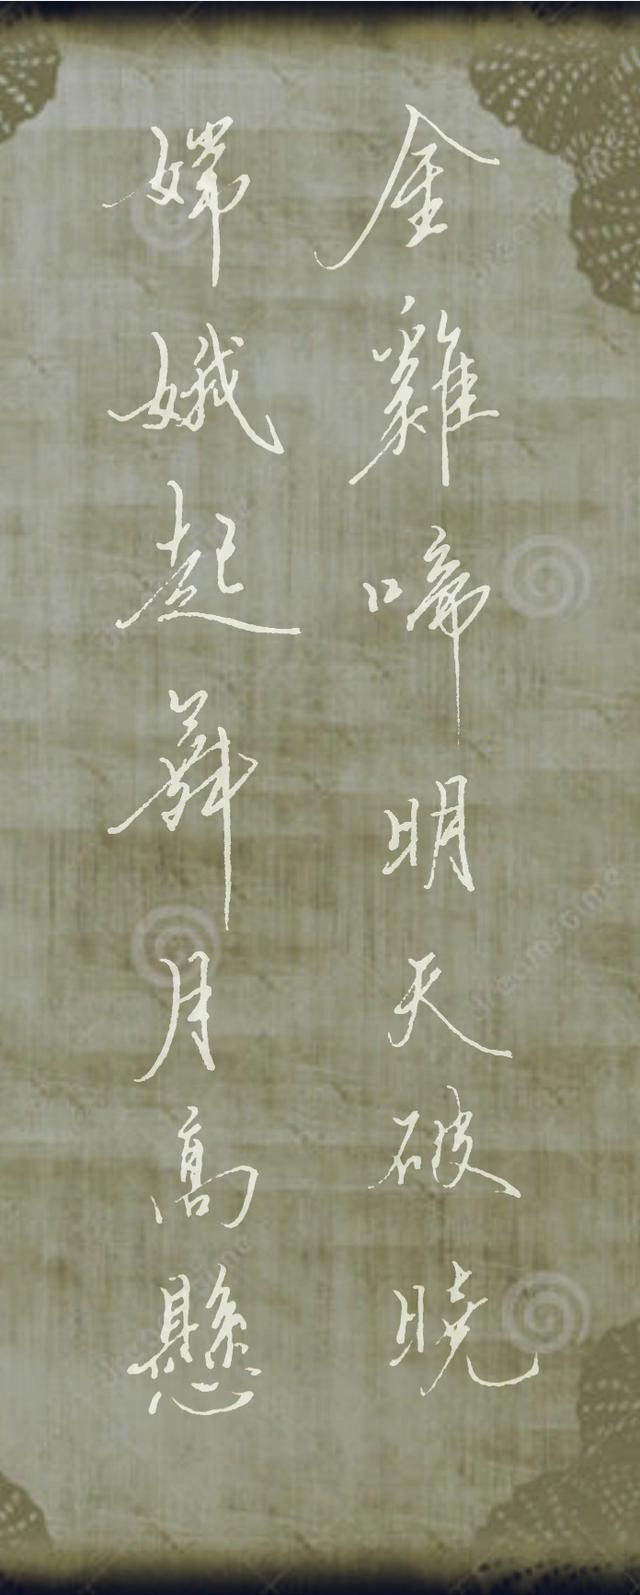 金雞啼明天破曉
嫦娥起舞月高懸